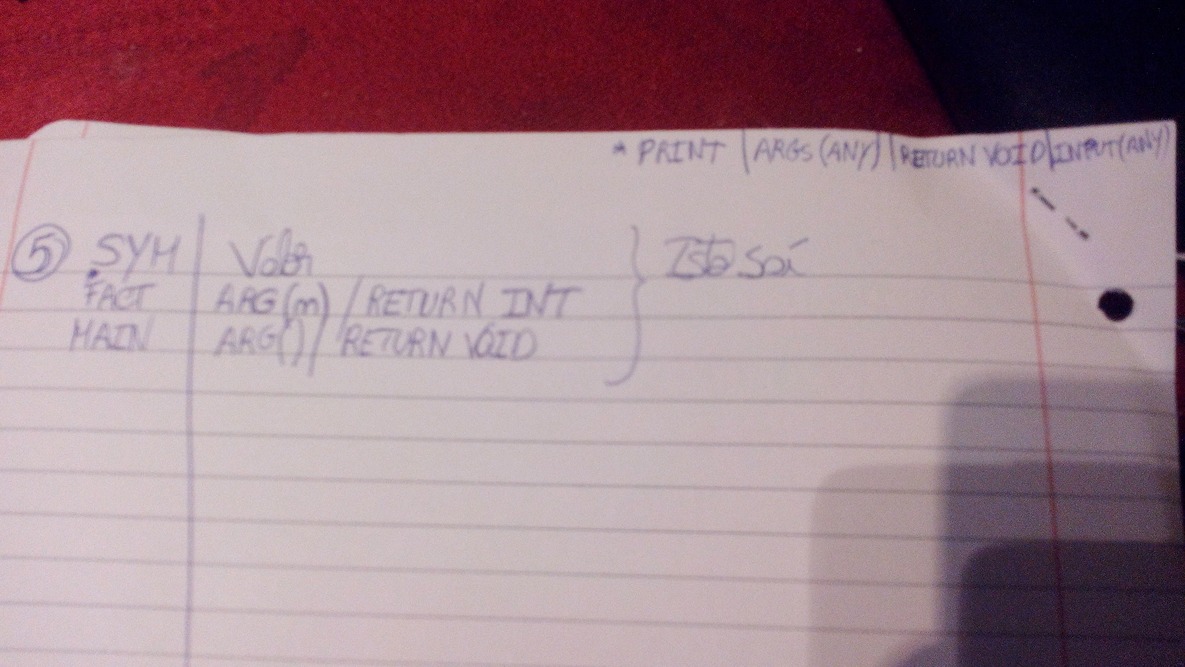 * PRINT | ARGS (ANY) | RETURN VOID | INPUT (ANY)
5 SYM | Valor } Isto sai
FACT | ARG(m) / RETURN INT
MAIN | ARG() / RETURN VOID